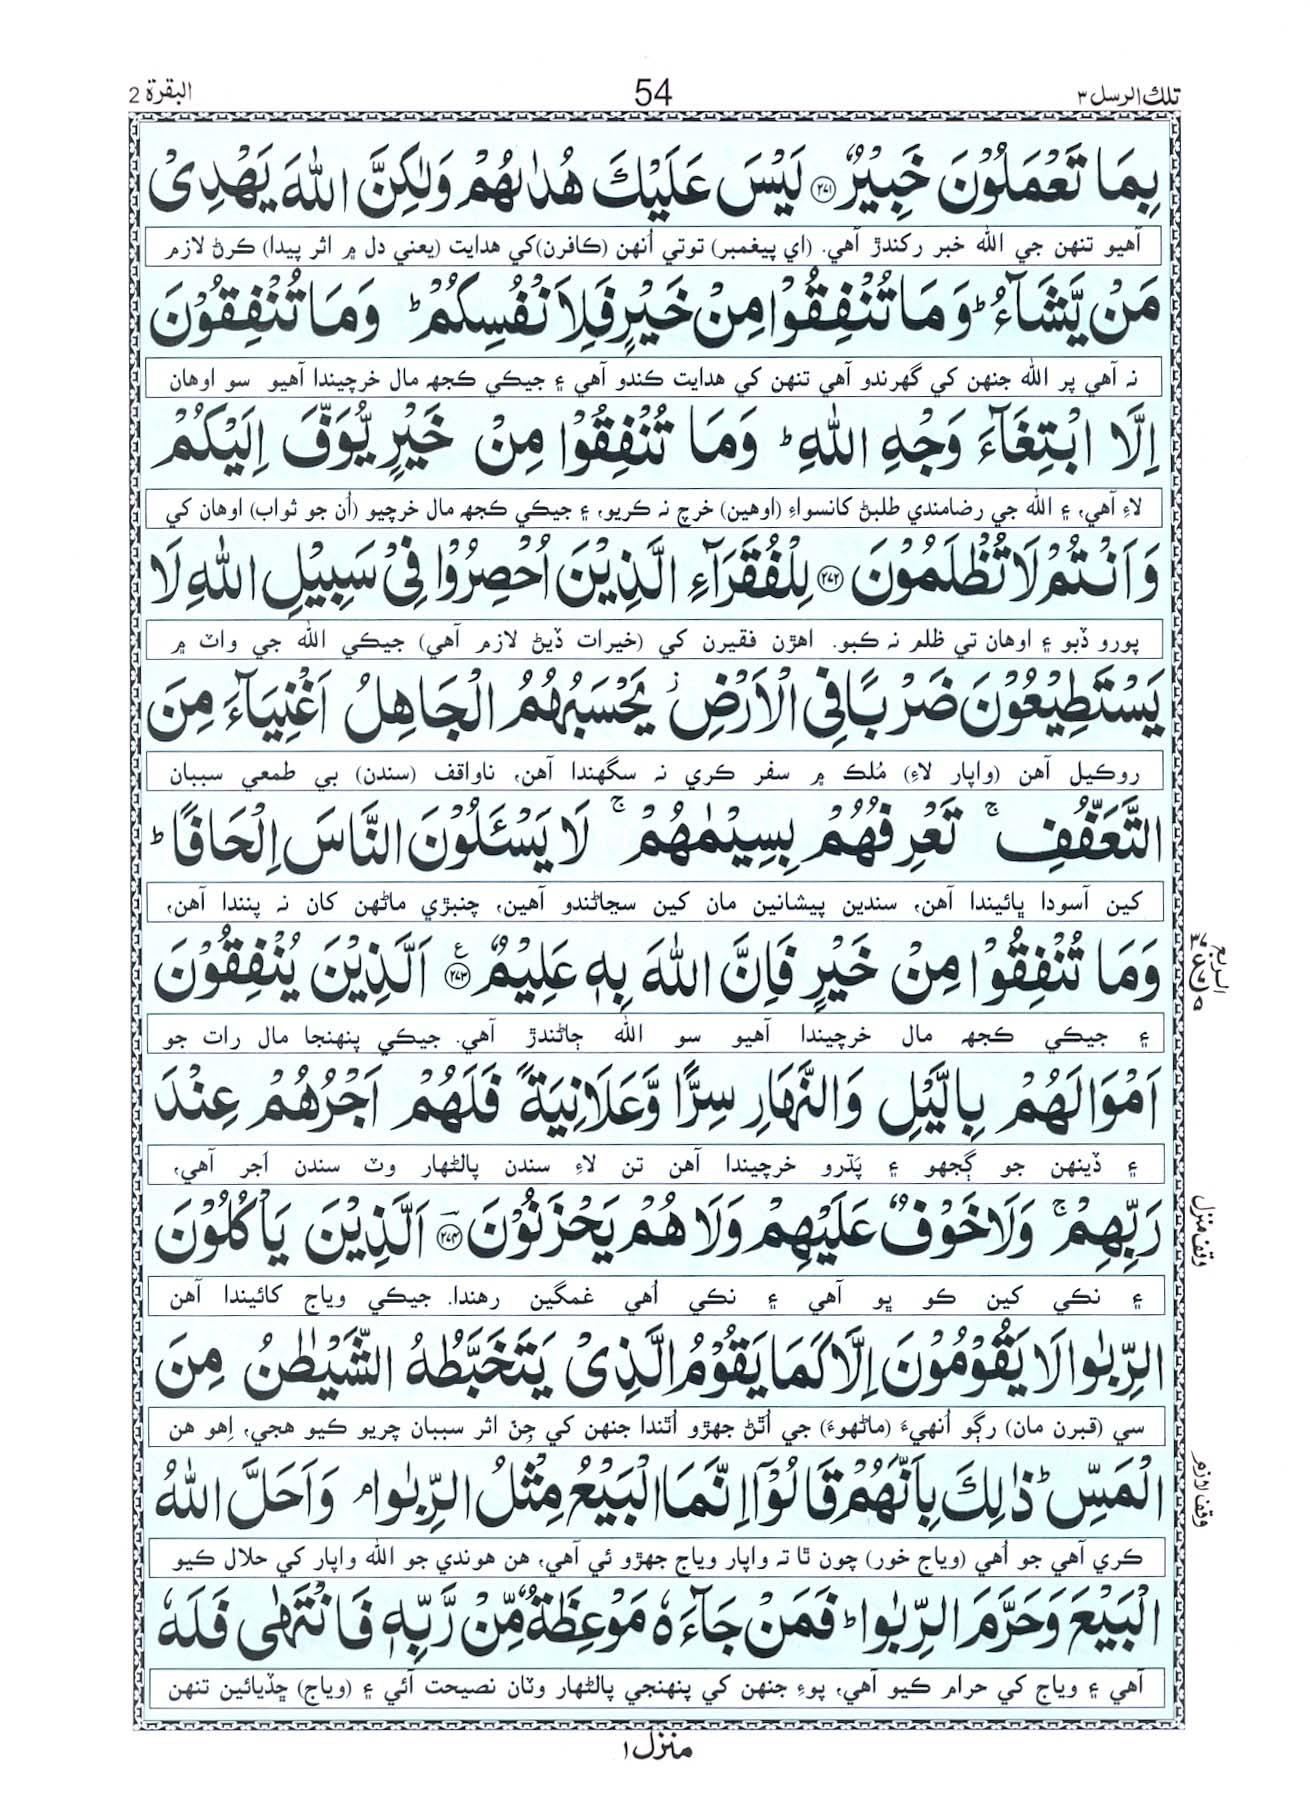 تلك الرسل ٣
54
البقرة 2
بِمَا تَعْمَلُوْنَ خَبِيْرٌ ﴿٢٧١﴾ لَيْسَ عَلَيْكَ هُدٰىهُمْ وَلٰكِنَّ اللّٰهَ يَهْدِىْ
آهيو تنهن جي الله خبر رکندڙ آهي. (اي پيغمبر) توتي اُنهن (ڪافرن)کي هدايت (يعني دل ۾ اثر پيدا) ڪرڻ لازم
مَنْ يَّشَآءُ ؕ وَ مَا تُنْفِقُوْا مِنْ خَيْرٍ فَلِاَنْفُسِكُمْ ؕ وَمَا تُنْفِقُوْنَ
نہ آهي پر الله جنهن کي گهرندو آهي تنهن کي هدايت ڪندو آهي ۽ جيڪي ڪجهہ مال خرچيندا آهيو سو اوهان
اِلَّا ابْتِغَآءَ وَجْهِ اللّٰهِ ؕ وَمَا تُنْفِقُوْا مِنْ خَيْرٍ يُّوَفَّ اِلَيْكُمْ
لاءِ آهي، ۽ الله جي رضامندي طلبڻ کانسواءِ (اوهين) خرچ نہ ڪريو، ۽ جيڪي ڪجهہ مال خرچيو (اُن جو ثواب) اوهان کي
وَاَنْتُمْ لَا تُظْلَمُوْنَ ﴿٢٧٢﴾ لِلْفُقَرَآءِ الَّذِيْنَ اُحْصِرُوْا فِىْ سَبِيْلِ اللّٰهِ لَا
پورو ڏبو ۽ اوهان تي ظلم نہ ڪبو. اهڙن فقيرن کي (خيرات ڏيڻ لازم آهي) جيڪي الله جي واٽ ۾
يَسْتَطِيْعُوْنَ ضَرْبًا فِى الْاَرْضِ ز يَحْسَبُهُمُ الْجَاهِلُ اَغْنِيَآءَ مِنَ
روڪيل آهن (واپار لاءِ) مُلڪ ۾ سفر ڪري نہ سگهندا آهن، ناواقف (سندن) بي طمعي سببان
التَّعَفُّفِ ۚ تَعْرِفُهُمْ بِسِيْمٰهُمْ ۚ لَا يَسْـَٔلُوْنَ النَّاسَ اِلْحَافًا ؕ
کين آسودا ڀائيندا آهن، سندين پيشانين مان کين سڃاڻندو آهين، چنبڙي ماڻهن کان نہ پنندا آهن،
وَمَا تُنْفِقُوْا مِنْ خَيْرٍ فَاِنَّ اللّٰهَ بِهٖ عَلِيْمٌ ﴿٢٧٣﴾ ع اَلَّذِيْنَ يُنْفِقُوْنَ
۽ جيڪي ڪجهہ مال خرچيندا آهيو سو الله ڄاڻندڙ آهي. جيڪي پنهنجا مال رات جو
اَمْوَالَهُمْ بِالَّيْلِ وَالنَّهَارِ سِرًّا وَّعَلَانِيَةً فَلَهُمْ اَجْرُهُمْ عِنْدَ
۽ ڏينهن جو ڳجهو ۽ پَڌرو خرچيندا آهن تن لاءِ سندن پالڻهار وٽ سندن اَجر آهي،
رَبِّهِمْ ۚ وَلَا خَوْفٌ عَلَيْهِمْ وَلَا هُمْ يَحْزَنُوْنَ ﴿٢٧٤﴾ اَلَّذِيْنَ يَاْكُلُوْنَ
۽ نڪي کين ڪو ڀو آهي ۽ نڪي اُهي غمگين رهندا. جيڪي وياج کائيندا آهن
الرِّبٰوا لَا يَقُوْمُوْنَ اِلَّا كَمَا يَقُوْمُ الَّذِىْ يَتَخَبَّطُهُ الشَّيْطٰنُ مِنَ
سي (قبرن مان) رڳو اُنهيءَ (ماڻهوءَ) جي اُٿڻ جهڙو اُٿندا جنهن کي جِنّ اثر سببان چريو ڪيو هجي، اِهو هن
الْمَسِّ ؕ ذٰلِكَ بِاَنَّهُمْ قَالُوْٓا اِنَّمَا الْبَيْعُ مِثْلُ الرِّبٰوا ۘ وَاَحَلَّ اللّٰهُ
ڪري آهي جو اُهي (وياج خور) چون ٿا تہ واپار وياج جهڙو ئي آهي، هن هوندي جو الله واپار کي حلال ڪيو
الْبَيْعَ وَحَرَّمَ الرِّبٰوا ؕ فَمَنْ جَآءَهٗ مَوْعِظَةٌ مِّنْ رَّبِّهٖ فَانْتَهٰى فَلَهٗ
آهي ۽ وياج کي حرام ڪيو آهي، پوءِ جنهن کي پنهنجي پالڻهار وٽان نصيحت آئي ۽ (وياج) ڇڏيائين تنهن
وقف منزل
وقف لازم
منزل ١